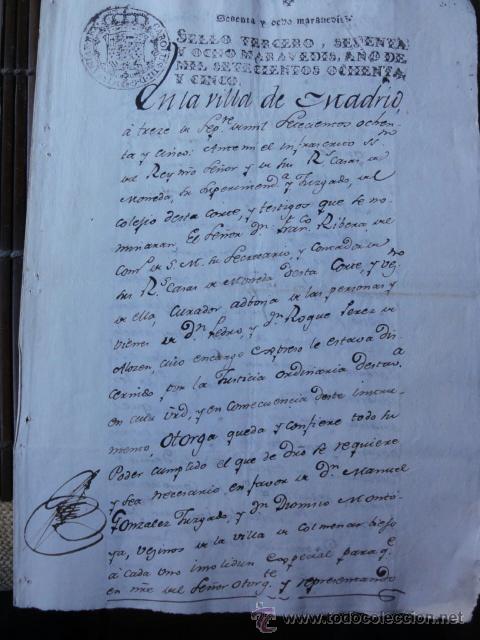 Setenta y ocho maravedis
SELLO TERCERO, SETENTA
Y OCHO MARAVEDIS, AÑO DE
MIL SETECIENTOS OCHENTA
Y CINCO.
En la villa de Madrid,
á treze de Sepre. de mil setecientos ochen
ta y cinco: Ante mi el infrascrito SSno.
del Rey nro Señor y de sus Rs. Casas de
Moneda, su Superintenda. y Juzgado, del
colegio desta corte, y testigos que se no
minaran, El Señor Dn. Franco. Ribera, del
Conso. de S. M. su Secretario, y Contador de
sus Rs. Casas de Moneda desta Corte, y Vezno.
de ella, Curador adbona de las personas y
vienes de Dn. Pedro, y Dn. Roque Perez de
Alozen, cuio encargo expreso le estava dis
cernido, por la Justicia Ordinaria desta
en cuia Vrd, y en consecuencia deste instru
mento, Otorga queda y confiere todo su
Poder cumplido el que de Dro se requiere
y sea necesario en favor de Dn. Manuel
Gonzalez Juzgado, y Dn. Dionisio Monto
ya, vezinos de la villa de Colmenar biejo
á cada uno insolidun especial para qe.
en nre del Señor Otorgte. y representando
todocoleccion.net